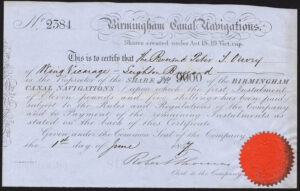 No. 2384 Birmingham Canal Navigations.
Shares created under Act 18.19 Vict. cap.
This is to certify that The Reverend Peter T. Ouvry
of Wing Vicarage Leighton
is the Proprietor of the SHARE No. 9070 of the BIRMINGHAM
CANAL NAVIGATIONS upon which the first Instalment
of Eleven pounds and shillings has been paid
Subject to the Rules and Regulations of the Company
and to Payment of the remaining Instalments as
stated on the back of this Certificate.
Given under the Common Seal of the Company
the 1st day of June 18
Robert Thomas
Clerk to the Company